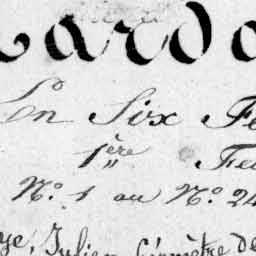 arda
En Six Fe
1ère Feu
N° 1 au N° 24
ye, Julien Géomètre de